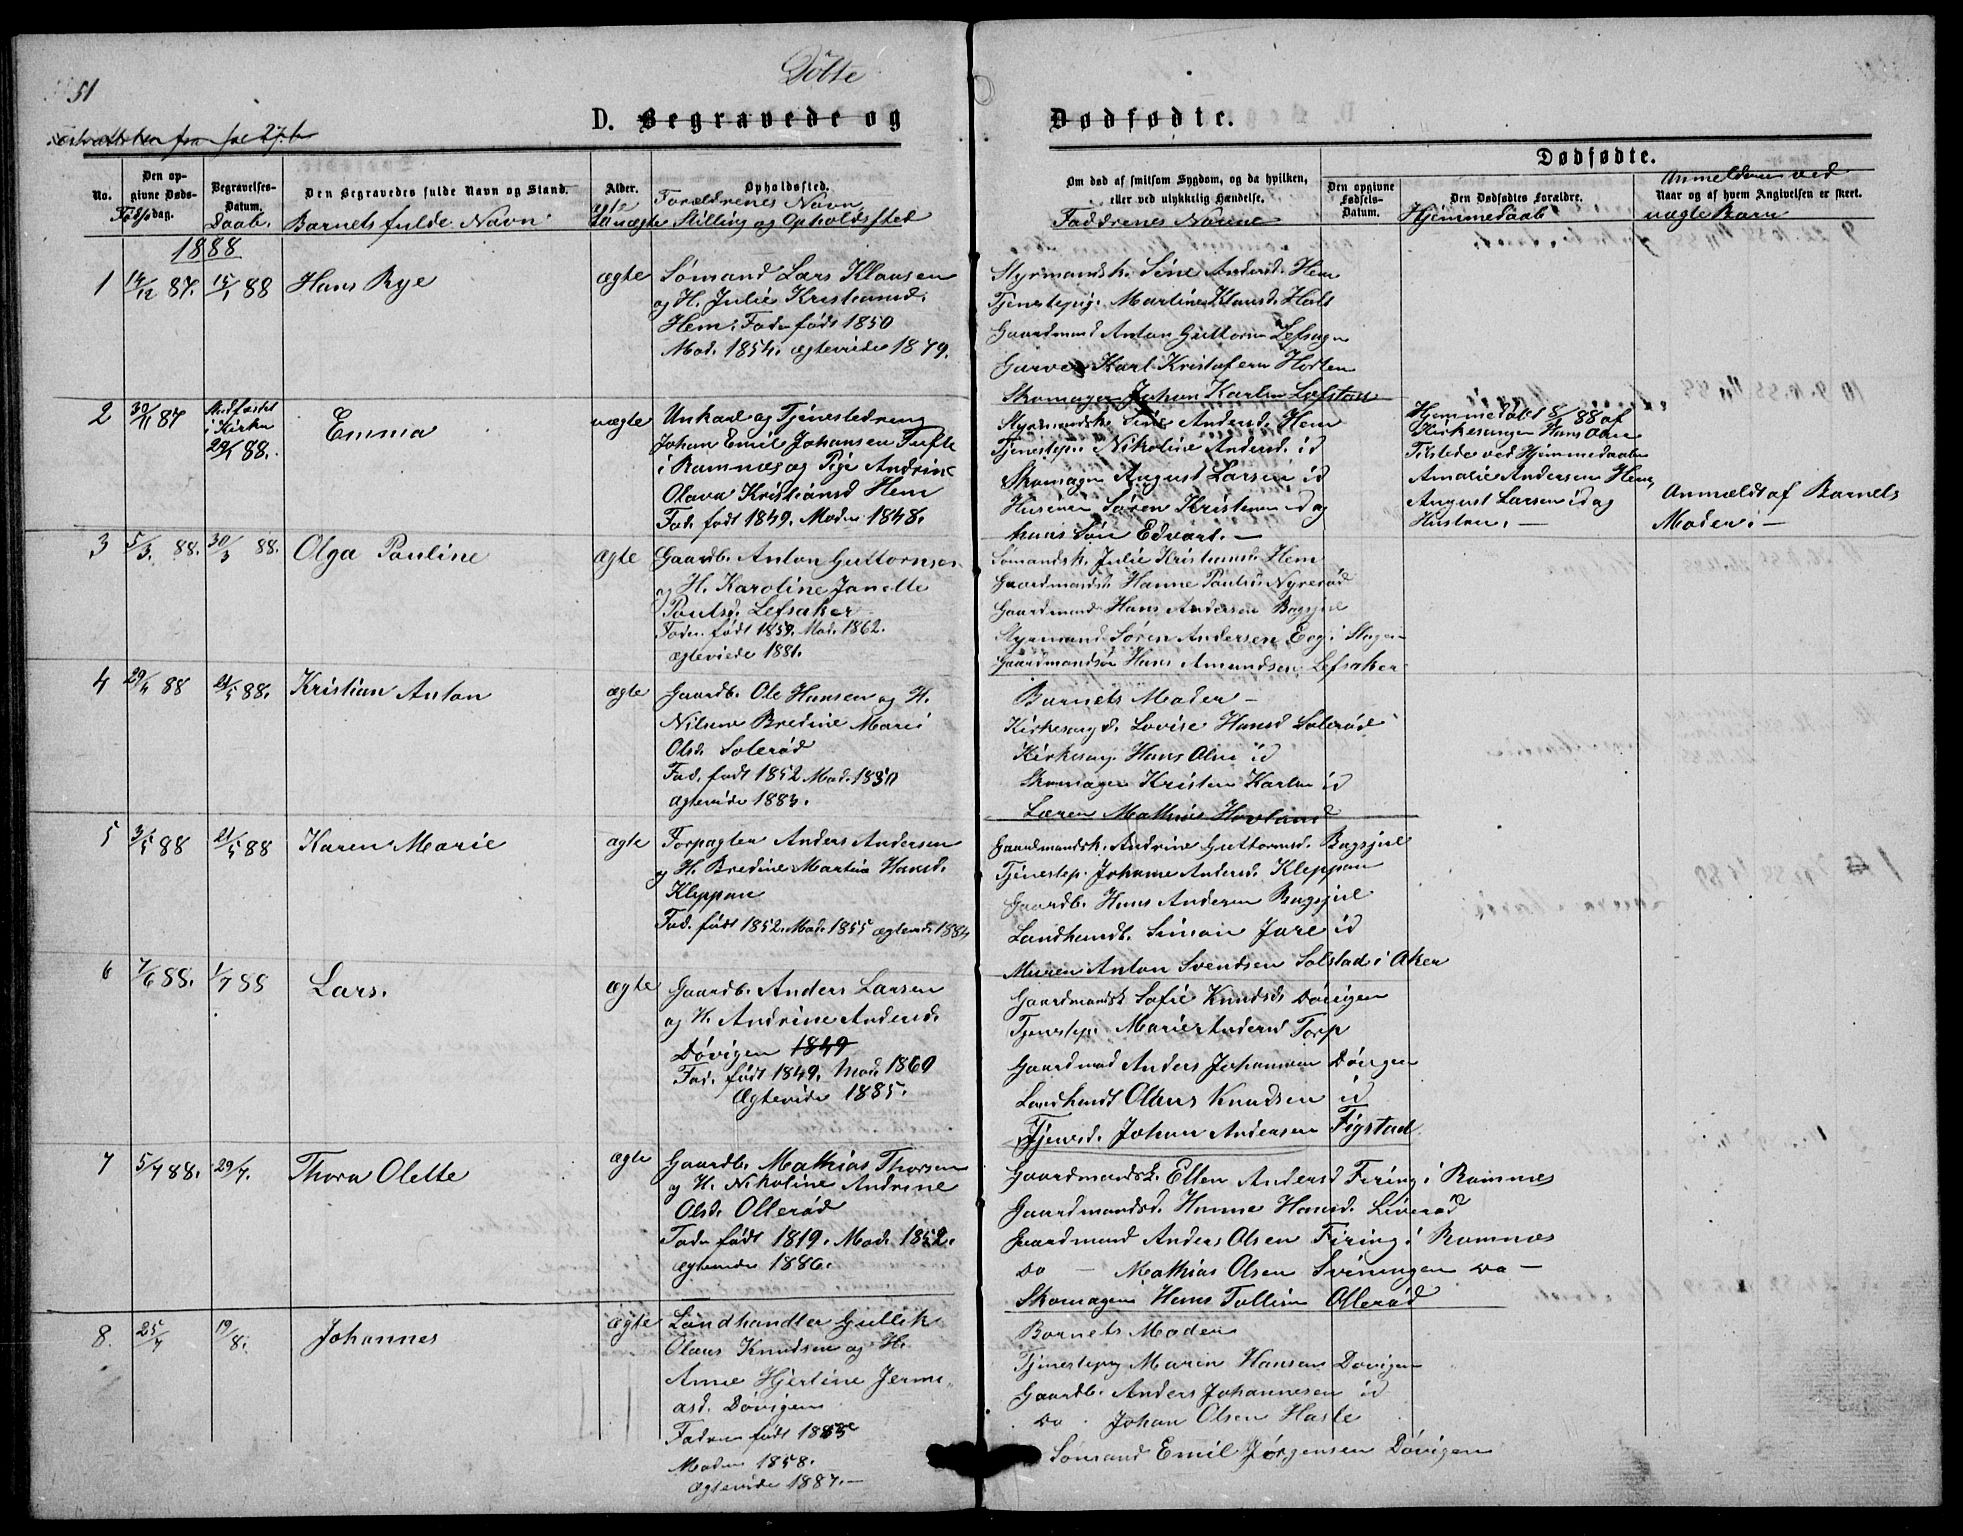 51
Døbte
D. Begravede og
Dødfødte.
fra
No.
Den op-
givne Døds-
dag.
Føds
Begravelses-
Datum.
Daab.
Den Begravedes fulde Navn og Stand.
Barnets fulde Navn
Alder.
uægte
Opholdssted.
Forældrenes Navn
Stilling og Opholdssted
Om død af smitsom Sygdom, og da hvilken,
eller ved ulykkelig Hændelse.
Faddrenes Navne
Dødfødte.
Den opgivne
Fødsels-
Datum.
Den Dødfødtes Forældre.
Hjemmedaab
Anmeldere ved
Naar og af hvem Angivelsen er skeet.
uægte Barn
1888
1 14/12 87. 15/1 88 Hans Rye ægte
Sømand Lars Klausen
og H. Julie Kristiansd.
Hem. Fader født 1850
Mod. 1854. ægteviede 1879.
Styrmandsk. Sine Andersd. Hem
Tjenestepig. Martine Klausd. Hals
Gaardmand Anton Guttormsen Lefsager
Garver Karl Kristofersen Horten
Skomager Johan Karlsen Lefsaker
2 30/11 87
Stadfæstet
i Kirken
29/1 88.
Emma uægte
Unkarl og Tjenestedreng
Johan Emil Johansen Tufte
i Ramnæs og Pige Andrine
Olava Kristiansd Hem
Fad. født 1849. Moder 1848.
Styrmandsk. Sine Andersd. Hem
Tjenestep. Nikoline Andersd. id
Skomager August Larsen id
Husmand Søren Kristensen id og
hans Søn Edvart. –
Hjemmedøbt 8/1 88 af
Kirkesanger Hans Olsen
Tilstede ved Hjemmedaaben
Amalie Andersen Hem,
August Larsen id og
Hustru. –
Anmeldt af Barnets
Moder. –
3 5/3. 88. 30/3 88. Olga Pauline ægte
Gaardb. Anton Guttormsen
og H. Karoline Janette
Paulsd. Lefsaker
Fader født 1859. Mod. 1862.
ægteviede 1881.
Sømandsk. Julie Kristiansd. Hem
Gaardmandsk. Hanne Paulsd. Nyrerød
Gaardmand Hans Andersen Bagsjøe
Styrmand Søren Andersen Eeg i Slagen
Gaardmandsøn Hans Amundsen Lefsaker
4 29/4 88 21/5 88. Kristian Anton ægte
Gaardb. Ole Hansen og H.
Nilsine Bredine Marie
Olsd. Solerød
Fad. født 1852 Mod. 1850
ægteviede 1883.
Barnets Moder –
Kirkesang.d. Lovise Hansd Solerød
Kirkesang. Hans Olsen id
Skomager Kristen Karlsen id
Lærer Mathias Hovland
5 3/5 88 21/5 88 Karen Marie ægte
Forpagter Anders Andersen
og H. Bredine Martine Hansd.
Kleppan
Fad. født 1852. Mod. 1855 ægtevied. 1884
Gaardmandsk. Andrine Guttormsd. Bagsjøe
Tjenestep. Johanne Andersd. Kleppan
Gaardb. Hans Andersen Bagsjøe
Landhandl. Simon Jare id
Murer Anton Svendsen Solstad i Aker
6 7/6 88. 1/7 88 Lars. ægte
Gaardb. Anders Larsen
og H. Andrine Andersd.
Døvigen 1849
Fad. født 1849. Mod 1860
Ægteviede 1885.
Gaardmandsk Sofie Knudsd. Døvigen
Tjenestep. Marie Andersd Torp
Gaardmand Anders Johannesen Døvigen
Landhandl Olaus Knudsen id
Tjenesd. Johan Andersen Figstad
7 5/7 88. 29/7. Thora Olette ægte
Gaardb. Mathias Thorsen
og H. Nikoline Andrine
Olsd. Ollerød
Fader født 1819. Mod. 1852.
ægteviede 1886.
Gaardmandsk. Ellen Andersd Firing i Ramnæs
Gaardmandsd. Hanne Hansd. Liverød
Gaardmand Anders Olsen Firing i Ramnæs
Do – Mathias Olsen Sviningen Do –
Skomager Hans Tollisen Ollerød
8. 25/7 19/8. Johannes ægte
Landhandler Gullik
Olaus Knudsen og H.
Anne Hjertine Jermi-
asd. Døvigen
Faderen født 1853
Moder 1858.
Ægteviede 1887. –
Barnets Moder
Tjenestepig Maren Hansen Døvigen
Gaardb. Anders Johannesen id
Do. Johan Olsen Hasle
Sømand Emil Jørgensen Døvigen